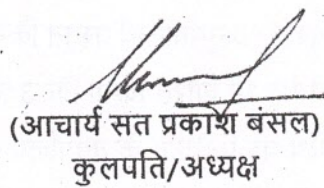 (आचार्य सत प्रकाश बंसल)
कुलपति/अध्यक्ष